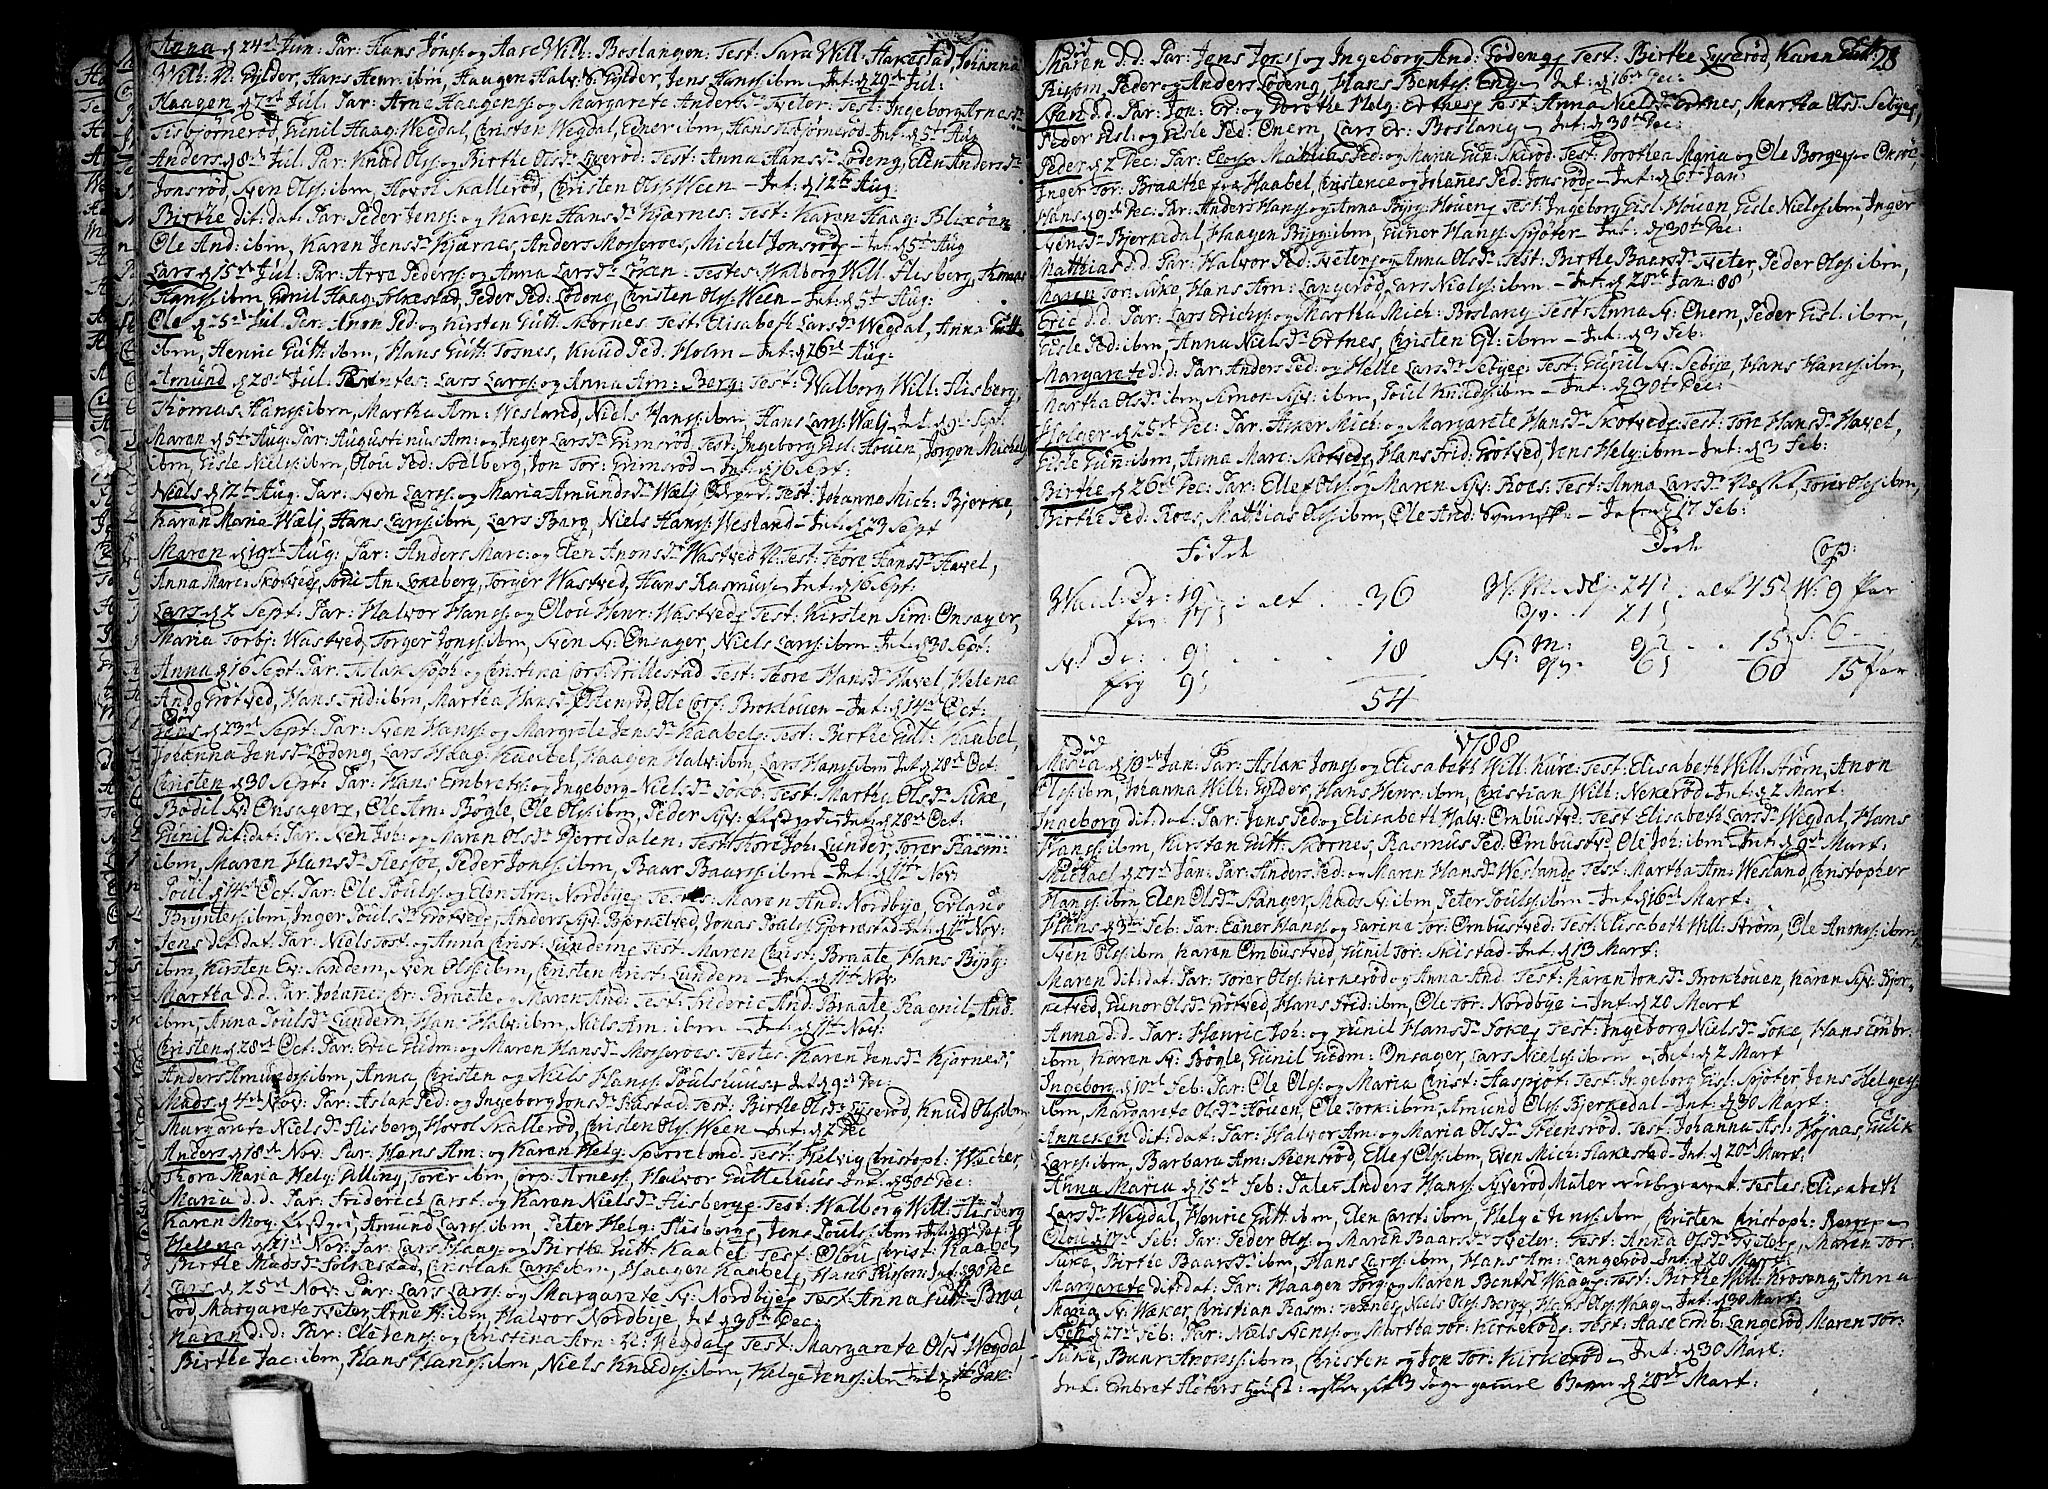 Anna d 24d Jun: Par: Hans Jönss: og Aase Will: Boslangen: Test: Sara Will: Hakestad, Johanna
Will: N. Gylder, Hans Henr: ibm, Haagen Halv: S. Gylder, Jens Hanss: ibm – Int: d 29d Jul:
Haagen d 7d Jul: Par: Arne Haagenss: og Margarete Andersd: Tveter: Test: Ingeborg Arnesd:
Tisbjörneröd, Gunil Haag: Wegdal, Christen Wegdal, Egner ibm, Hans Tisbjörneröd – Int: d 5t Aug
Anders d 8d Jul: Par: Knud Olss: og Birthe Olsd: Lyseröd: Test: Anna Hansd: Lödeng, Elen Andersd:
Jonsröd, Sven Olss: ibm, Hovol Skalleröd, Christen Olss: Ween – Int: d 12th Aug:
Birthe dit: dat: Par: Peder Jenss: og Karen Hansd: Kjærnes: Test: Karen Haag: Blixöen
Ole And: ibm, Karen Jensd: Kjærnes, Anders Mosseroes, Michel Jonsröd – Int: d 5t Aug
Lars d 15d Jul: Par: Arve Pederss: og Anna Larsd: Löken: Testes: Walborg Will: Flesberg, Thomas
Hanss: ibm, Gunil Haag: Folkestad, Peder Ped: Lödeng, Christen Olss: Ween – Int: d 5t Aug:
Ole d 25d Jul: Par: Anon Ped: og Kirsten Gutt: Skornes: Test: Elisabeth Larsd: Wegdal, Anna Gutt:
ibm, Henric Gutt: ibm, Hans Gutt: Tosnes, Knud Ped: Holm – Int: d 26d Aug:
Amund d 28d Jul: Parentes: Lars Larss: og Anna Am: Berg: Test: Walborg Will: Flesberg,
Thomas Hanss: ibm, Martha Am: Wesland, Niels Hanss: ibm, Hans Larss: Wælj – Int: d 9d Sept:
Maren d 5t Aug: Par: Augustinus Am: og Inger Larsd: Grimsröd, Test: Ingeborg Gisl: Houen, Jörgen Michels
ibm, Gisle Nielss: ibm, Olou Ped: Solberg, Jon Tor: Grimsröd – Int: d 16 Sept:
Niels d 12t Aug: Par: Sven Larss: og Maria Amundsd: Wælj Test: Johanna Mich: Bjerke,
Karen Maria Wælj, Hans Larss: ibm, Lars Barg, Niels Hanss: Wesland – Int: d 23 Sept
Maren d 19d Aug: Par: Anders Marc: og Elen Anonsd: Wastved N: Test: Thore Hansd: Havel,
Anna Marc: Skotved, Torger Wastved, Hans Rasmus – Int: d 16 Sept:
Lars d 2 Sept: Par: Halvor Hanss: og Olou Henr: Wastved Test: Kirsten Sim: Onsager,
Maria Torbj: Wastved, Torger Jonss: ibm, Sven Sv: Onsager, Niels Larss: ibm – Int: d 30 Sept:
Anna d 16 Sept: Par: Aslak Soph: og Christina Corf: Prillestad Test: Thore Hansd: Havel, Helena
And: Grotved, Hans Frid: ibm, Martha Hansd: Ellenröd, Ole Corf: Brokhouen – Int: d 14d Oct:
Död
Jens d 23d Sept: Par: Sven Hanss: og Margrete Jensd: Kaabel: Test: Birthe Gutt: Kaabel,
Johanna Jensd: Lödeng, Lars Haag: Kaabel, Haagen Halv: ibm, Lars Hanss: ibm Int: d 28d Oct:
Christen d 30 Sept: Par: Hans Embretss: og Ingeborg Nielsd: Soke: Test: Martha Olsd: Suke,
Bodil Sv: Onsager, Ole Am: Bogle, Ole Olss: ibm, Peder Int: d 28d Oct:
Gunil dit: dat: Par: Sven Joh: og Maren Olsd: Pjerredalen: Test: Thore Joh: Lunder, Torer Rasm:
ibm, Maren Hansd: Flesjöe, Peder Jonss: ibm, Baar Baarss: ibm – Int: d 11t Nov:
Poul d 14d Oct: Par: Ole Poulss: og Elen Am: Nordbye, Testes: Maren And: Nordbye, Erland
Bryntess: ibm, Inger Poulsd: Grotved, Anders Bjerketved, Jonas Poulss: Gjerrestad Int: d 11t Nov:
Jens dit: dat: Par: Niels Tost: og Anna Christ: Lundeine Test: Maren Christ: Braate, Hans
ibm, Kirsten Ev: Sandem, Sven Olss: ibm, Christen Christ: Lundem – Int: d 11t Nov:
Martha d.d. Par: Johanes Er: Braate og Maren And: Test: Frideric And: Braate, Ragnil And:
ibm, Anna Poulsd: Lundern, Hans Halv: ibm, Niels Am: ibm – Int: d 11t Nov:
Christen d 28d Oct: Par: Eric Gudm: og Maren Hansd: Mosseroes: Testes: Karen Jensd: Kjærnes,
Anders Amundss: ibm, Anna, Christen og Niels Hanss: Poulshuus – Int: d 9d Dec:
Mads d 4t Nov: Par: Aslak Ped: og Ingeborg Jonsd: Rustad: Test: Birthe Olsd: Lyseröd, Knud Olss: ibm
Margarete Nielsd: Flesberg, Hovol Skalleröd, Christen Olss: Ween – Int: d 2 Dec
Anders d 18d Nov: Par: Hans Am: og Karen Helg: Sperrebond: Test: Helvig Christoph: Wæcher,
Thora Maria Helg: Pilling, Torer ibm, Corp: Arness, Halvor Guttelhuus – Int: d 30t Dec:
Maria d.d. Par: Friderich Carst: og Karen Nielsd: Flesberg: Test: Walborg Will: Flesberg
Karen Moy: Amund Larss: ibm, Peter Helg: Flesberg, Jens Poulss: ibm Int: d 9d Dec:
Helena d 21d Nov: Par: Lars Haag: og Birthe Gutt: Kaabel Test: Olou Christ: Kaabel
Birthe Madsd: Folkestad, Christian Larss: ibm, Haagen Kaabel, Hans Rissom Int: d 30 Dec
Lars d 25d Nov: Par: Lars Larss: og Margarete Sv: Nordbye: Test: Anna Gutt: Braa,
röd, Margarete Tveter, Arne H: ibm, Halvor Nordbye, Int: d 30t Dec:
Karen d:d: Par: Ole Jenss: og Christina Arn: N: Wegdal: Test: Margarete Olsd: Wegdal
Birthe Jac: ibm, Hans Hanss: ibm, Niels Knudss: ibm, Helge Jenss: ibm – Int: d 1t Jan:
28
Maren d.d. Par: Jens Jonss: og Ingeborg And: Lödeng, Test: Birthe Lyseröd, Karen Gutt:
Rissom, Peder og Anders Lödeng, Hans Bentss: Eng – Int: d 16d Dec:
Jan d.d. Par: Jon: Er: og Dorothe Holg: Ertnes: Test: Anna Nielsd: Ertnes, Martha Olsd: Sebye,
Peder Gisl: og Gisle Ped: Enem, Lars Er: Boslang – Int: d 30th Dec:
Peder d 2 Dec: Par: Mathias Ped: og Maria Gutt: Skiröd: Test: Dorothea Maria og Ole Borge
Inger Tor: Braathe, Haabel, Christence og Johannes Ped: Jonsröd – Int: d 6t Jan:
Hans d 9d Dec: Par: Anders Hanss: og Anna Byrg: Houen, Test: Ingeborg Gisl: Houen, Gisle Nielss: ibm, Inger
Svensd: Bjerkedal, Haagen Byrg: ibm, Guner Hanss: Spjöter – Int: d 30t Dec:
Matthias d.d. Par: Halvor Ped: Tveter og Anna Olsd: Test: Birthe Baarsd: Tveter, Peder Olss: ibm,
Maren Tor: Suke, Hans Am: Langeröd, Lars Nielss: ibm – Int: d 20d Jan: 88
Eric d.d. Par: Lars Erichss: og Martha Mich: Boslang Test: Anna N: Enem, Peder Gisl: ibm,
Gisle Ped: ibm, Anna Nielsd: Ertnes, Christen Gl: ibm – Int: d 3 Feb:
Margarete d.d. Par: Anders Ped: og Helle Larsd: Sebye: Test: Gunil Sv: Sebye, Hans Hanss: ibm,
Martha Olsd: ibm, Simon Sv: ibm, Poul Knudss: ibm – Int: d 30t Dec:
Holger d 25d Dec: Par: Aner Mich: og Margarete Hansd: Skotved: Test: Tore Hansd: Havel,
Gisle Gun: ibm, Anna Marc: Skotved, Hans Frid: Grotved, Jens Helg: ibm – Int: d 3 Feb:
Birthe d 26d Dec: Par: Ellef Olss: og Maren Sv: Roes: Test: Anna Larsd: Torer Olss: ibm,
Birthe Ped: Roes, Mathias Olss: ibm, Ole And: Svensk – Int: d 17 Feb:
Födde Döde Cop:
Waal: Dr: 19 i alt 36 W: M: 24 i alt 45 W: 9 Par
Pig: 17 Qv: 21
N: Dr: 9 18 N: M: 9 15 S: 6
Pig 9 Qv: 6 60 15 Par
54
1788
Död
Maria d 13d Jan: Par: Aslak Jonss: og Elisabeth Will: Kure: Test: Elisabeth Will: Ström, Anon
Olss: ibm, Johanna Will: Gylder, Hans Henr: ibm, Christian Will: Nekeröd – Int: d 2 Mart:
Ingeborg dit: dat: Par: Jens Ped: og Elisabeth Halv: Ombustved: Test Elisabeth Larsd: Wegdal, Hans
Hanss: ibm, Kirsten Gutt: Skornes, Rasmus Ped: Ombustv: Ole Joh: ibm – Int: d 9d Mart:
Michael d 27d Jan: Par: Anders Ped: og Maren Hansd: Wesland: Test: Martha Am: Wesland, Christopher
Hanss: ibm, Elen Olsd: Stanger, Mads Sv: ibm, Peter Poulss: ibm – Int: d 16d Mart:
Hans d 3d Feb: Par: Egner Hanss: og Sarina Tor: Ombustved: Test: Elisabeth Will: Ström, Ole Anonss: ibm,
Sven Olss: ibm, Karen Ombustved, Gunil Tor: Sköistad – Int: d 13 Mart:
Maren dit: dat: Par: Torer Olss: Kerneröd og Anna And: Test: Karen Jonsd: Brokhouen, Karen Sv: Bjer,
ketved, Gunor Olsd: Grotved, Hans Frid: ibm, Ole Tor: Nordbye – Int: d 20 Mart
Anna d.d. Par: Henric Joh: og Gunil Hansd: Soke, Test: Ingeborg Nielsd: Soke, Hans Embr:
ibm, Karen N: Bögle, Gunil Gudm: Onsager, Lars Nielss: ibm – Int: d 2 Mart
Ingeborg d 10d Feb: Par: Ole Olss: og Maria Christ: Aaspjöt: Test: Ingeborg Gisl: Spjöter, Jens Helgess:
ibm, Margarete Olsd: Houen, Ole Tork: ibm, Amund Olss: Bjerkedal – Int: d 30 Mart:
Anneken dit: dat: Par: Halvor Am: og Maria Olsd: Steensröd: Test: Johanna Asl: Höjaas, Gulik
Larss: ibm, Barbara Am: Steensröd, Ellef Olss: ibm, Even Mich: Hakestad – Int: d 20d Mart:
Anna Maria d 15d Feb: Pater Anders Hanss: Syveröd Mater Testes: Elisabeth
Larsd: Wegdal, Henric Gutt: ibm, Elen Carst: ibm, Helge Jenss: ibm, Christen Christoph:
Olou d 17d Feb: Par: Peder Olss: og Maren Baarsd: Tveter: Test: Anna Olsd: Tveter, Maren Tor:
Suke, Birthe Baarsd: ibm, Hans Larss: ibm, Hans Am: Langeröd – Int: d 20 Mart:
Margarete dit: dat: Par: Haagen Torg: og Maren Bentsd: Waag: Test: Birthe Will: Kroseng, Anna
Maria N: Wæker, Christian Rasm: Niels Olss: Berg, Hans Olss: Waag – Int: d 30 Mart:
Sven d 27d Feb: Par: Niels Svenss: og Martha Tor: Kerneröd: Test: Aase Emb: Langeröd, Maren Tor:
Suke, Baar Anonss: ibm, Christen og Jon Tor: Kirkeröd – Int: d 30 Mart:
Int: Embret Sloters Hust: efter sit 3 dage gamle Barn d 20d Mart: